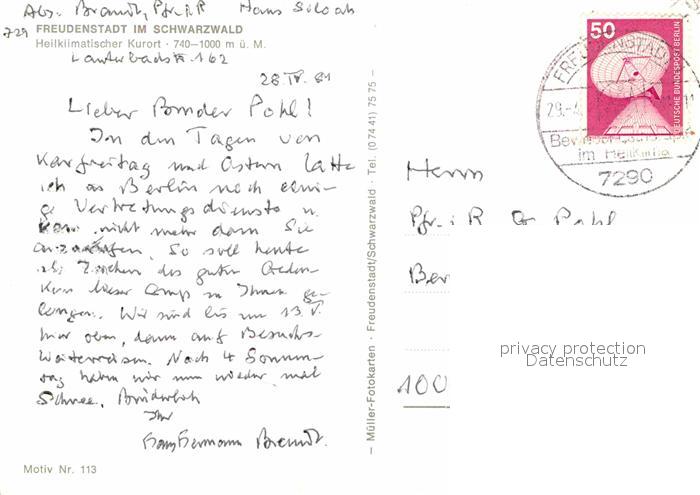 Abs. Brandt, Pfr. i R Haus Siloah
729
FREUDENSTADT IM SCHWARZWALD
Heilklimatischer Kurort · 740–1000 m ü. M.
162
28. IV. 81
Lieber Bruder Pohl!
In den Tagen von
Karfreitag und Ostern hatte
ich in Berlin noch eini-
ge Vertretungsdienste u.
kam nicht mehr dazu Sie
anzurufen. So soll heute
als Zeichen des guten Geden-
kens dieser Gruß zu Ihnen ge-
langen. Wir sind bis zum 13. V.
hier oben, dann auf Besuchs-
Weiterreisen. Nach 4 Sommer-
tag haben wir nun wieder mal
Schnee. Brüderlich
Ihr
Hans Hermann Brandt.
Motiv Nr. 113
– Müller-Fotokarten · Freudenstadt/Schwarzwald · Tel. (0 74 41) 75 75 –
50
DEUTSCHE BUNDESPOST BERLIN
FREUDENSTADT
29.-4.
im Heilklima
7290
Herrn
Pfr. i R Pohl
Ber
100
privacy protection
Datenschutz